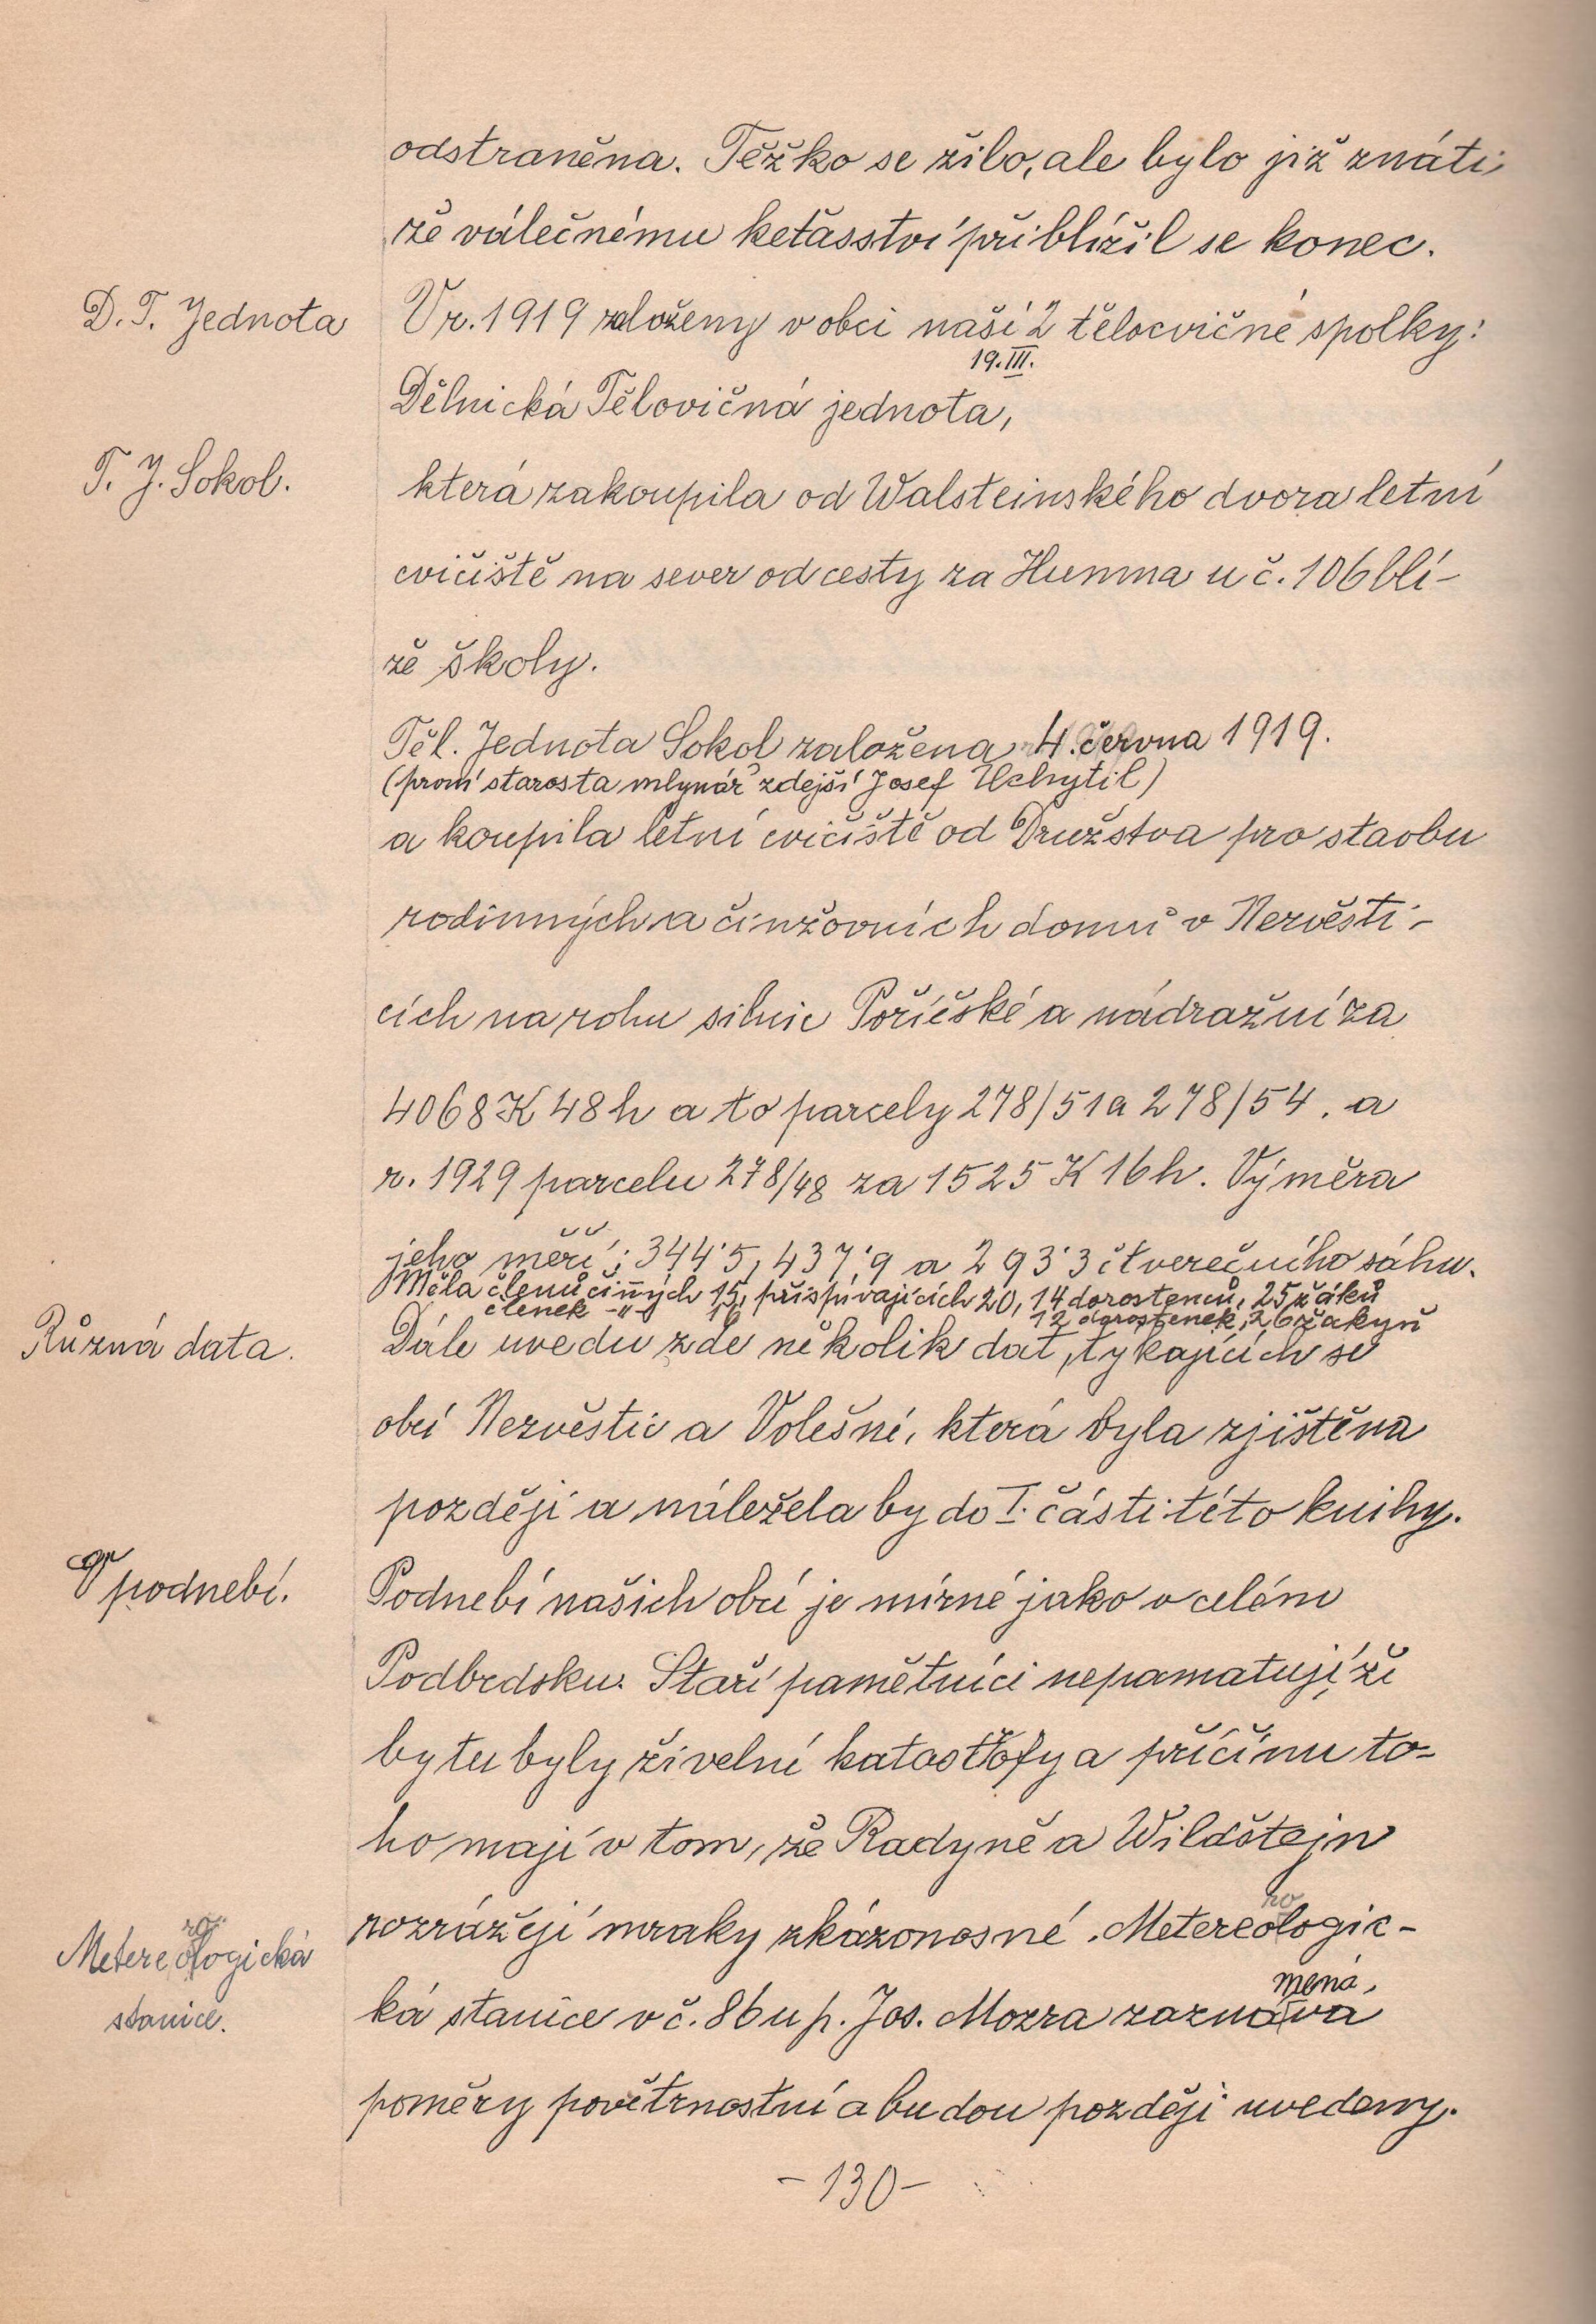 odstraněna. Těžko se žilo, ale bylo již znáti
že válečnému keťasství přiblížil se konec.
D. T. Jednota
V r. 1919 založeny v obci naší 2 tělocvičné spolky:
19. III.
Dělnická Tělovičná jednota,
T. J. Sokol.
která zakoupila od Walsteinského dvora letní
cvičiště na sever od cesty za Humna u č. 106 blí-
že školy.
Těl. Jednota Sokol založena 4. června 1919.
(první starosta mlynář zdejší Josef Uchytil)
a koupila letní cvičiště od Družstva pro stavbu
rodinných a činžovních domů v Nezvěsti-
cích na rohu silnic Poříčské a nádražní za
4068 K 48 h a to parcely 278/51 a 278/54. a
r. 1929 parcelu 278/48 za 1525 K 16 h. Výměra
jeho měří: 344'5, 437'9 a 293'3 čtverečního sáhu.
Měla členů činných 15, přispívajících 20, 14 dorostenců, 25 žáků
členek -"- 16 12 dorostenek, 26 žakyň
Různá data.
Dále uvedu zde několik dat, týkajících se
obcí Nezvěstic a Volešné, která byla zjištěna
později a náležela by do I. části této knihy.
O podnebí.
Podnebí našich obcí je mírné jako v celém
Podbrdsku. Staří pamětníci nepamatují, že
by tu byly živelní katastrofy a příčinu to-
ho mají v tom, že Radyně a Wildštejn
rozrážejí mraky zkázonosné. Metereologic-
ro
Metereologická
ro
stanice.
mená
ká stanice v č. 86 u p. Jos. Mozra zaznává
poměry povětrnostní a budou později uvedeny.
- 130 -